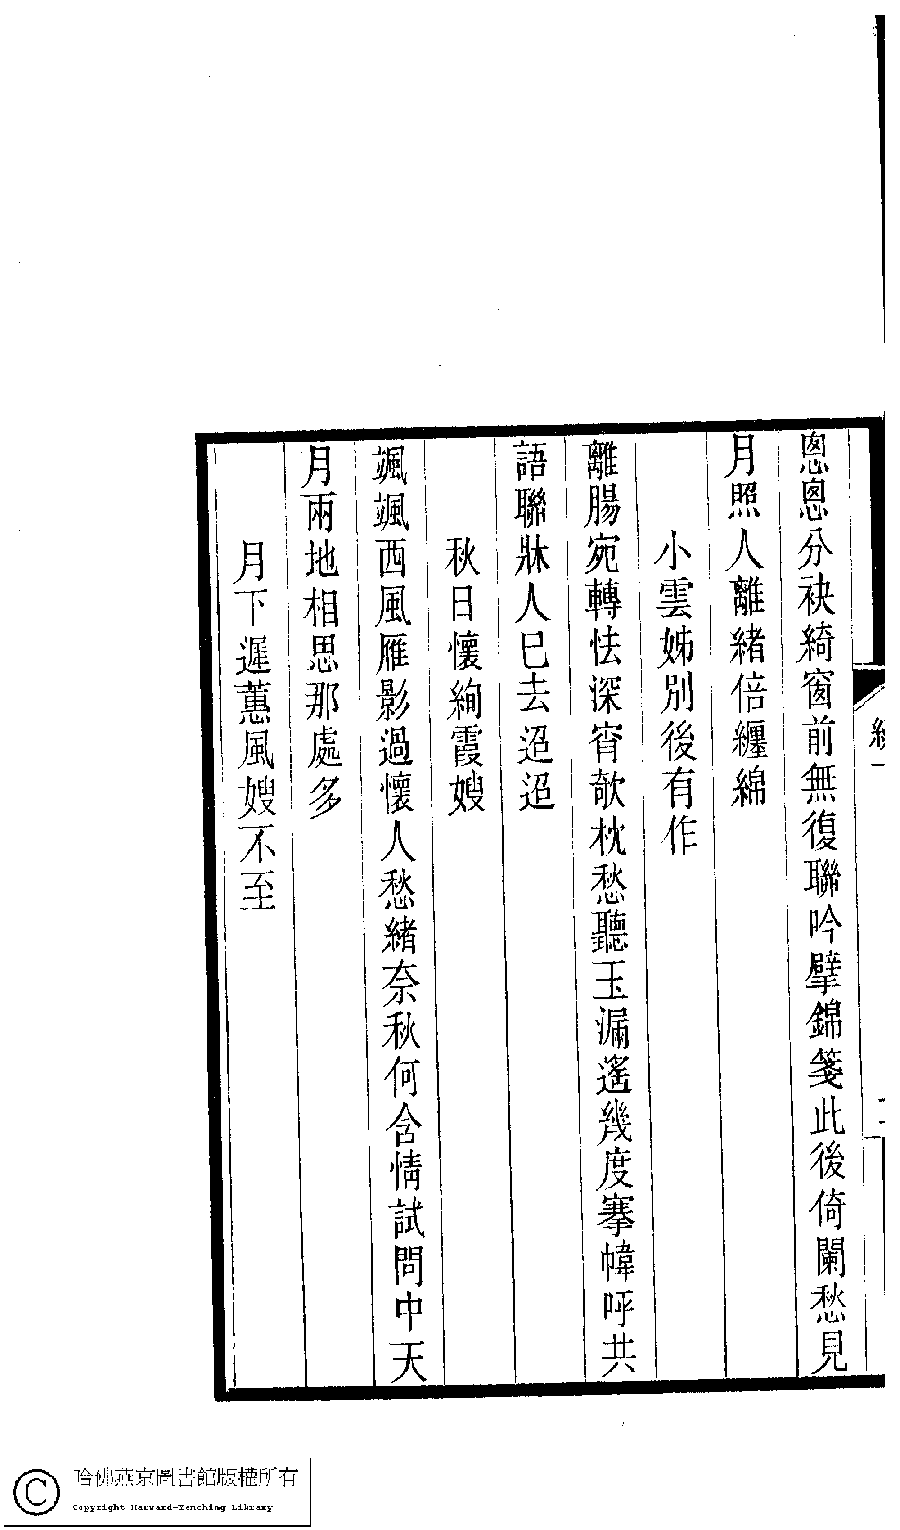 悤悤分袂綺窗前無復聯吟擘錦箋此後倚闌愁見
月照人離緒倍纏綿
小雲姊別後有作
離腸宛轉怯深宵欹枕愁聽玉漏遙幾度搴幃呼共
語聯牀人巳去迢迢
秋日懷絢霞嫂
颯颯西風雁影過懷人愁緒奈秋何含情試問中天
月兩地相思那處多
月下遲蕙風嫂不至
哈佛燕京圖書館版權所有
Copyright Harvard-Yenching Library